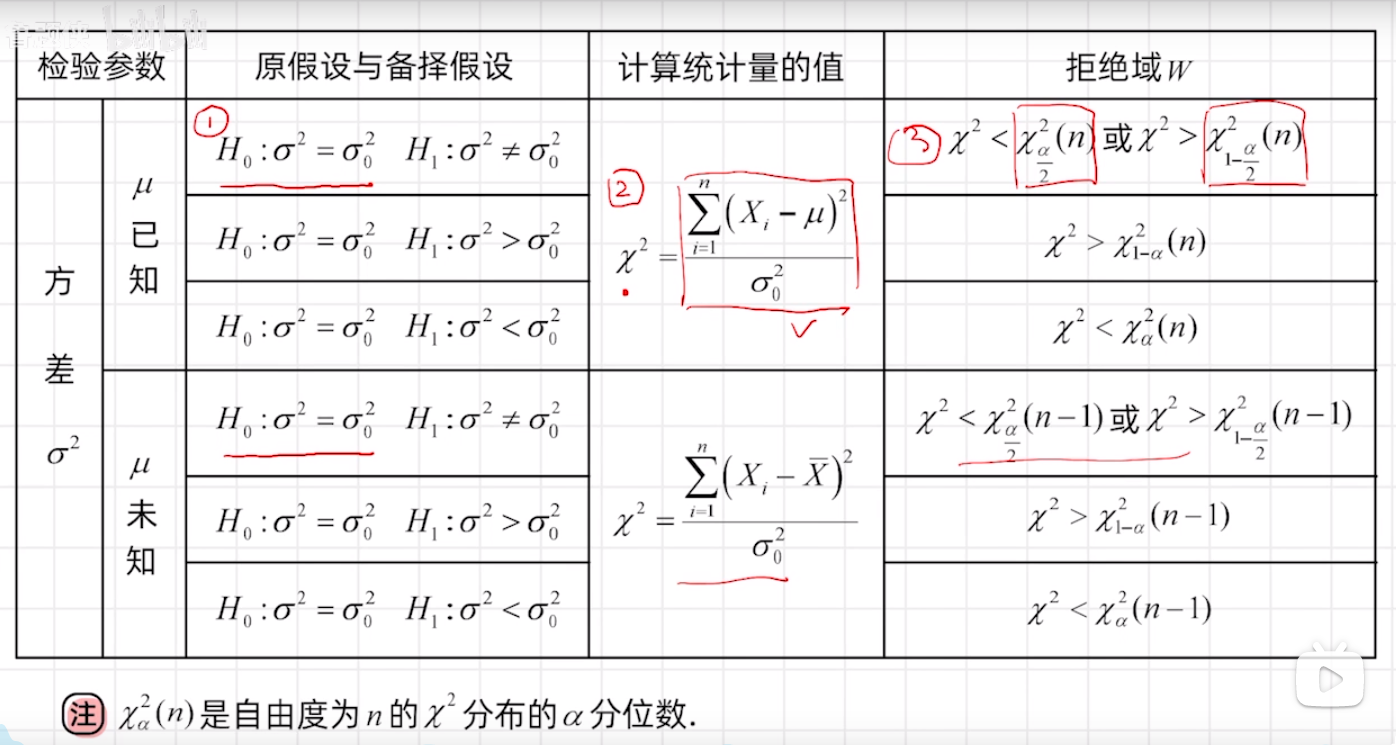 检验参数 原假设与备择假设 计算统计量的值 拒绝域W
方差σ² μ已知 ① H₀:σ²=σ₀² H₁:σ²≠σ₀² ② χ² = ∑ᵢ₌₁ⁿ(Xᵢ−μ)² / σ₀² ③ χ² < χ²_{α/2}(n) 或 χ² > χ²_{1−α/2}(n)
H₀:σ²=σ₀² H₁:σ²>σ₀² χ² > χ²_{1−α}(n)
H₀:σ²=σ₀² H₁:σ²<σ₀² χ² < χ²_α(n)
μ未知 H₀:σ²=σ₀² H₁:σ²≠σ₀² χ² = ∑ᵢ₌₁ⁿ(Xᵢ−X̄)² / σ₀² χ² < χ²_{α/2}(n−1) 或 χ² > χ²_{1−α/2}(n−1)
H₀:σ²=σ₀² H₁:σ²>σ₀² χ² > χ²_{1−α}(n−1)
H₀:σ²=σ₀² H₁:σ²<σ₀² χ² < χ²_α(n−1)
注 χ²_α(n)是自由度为n的χ²分布的α分位数.